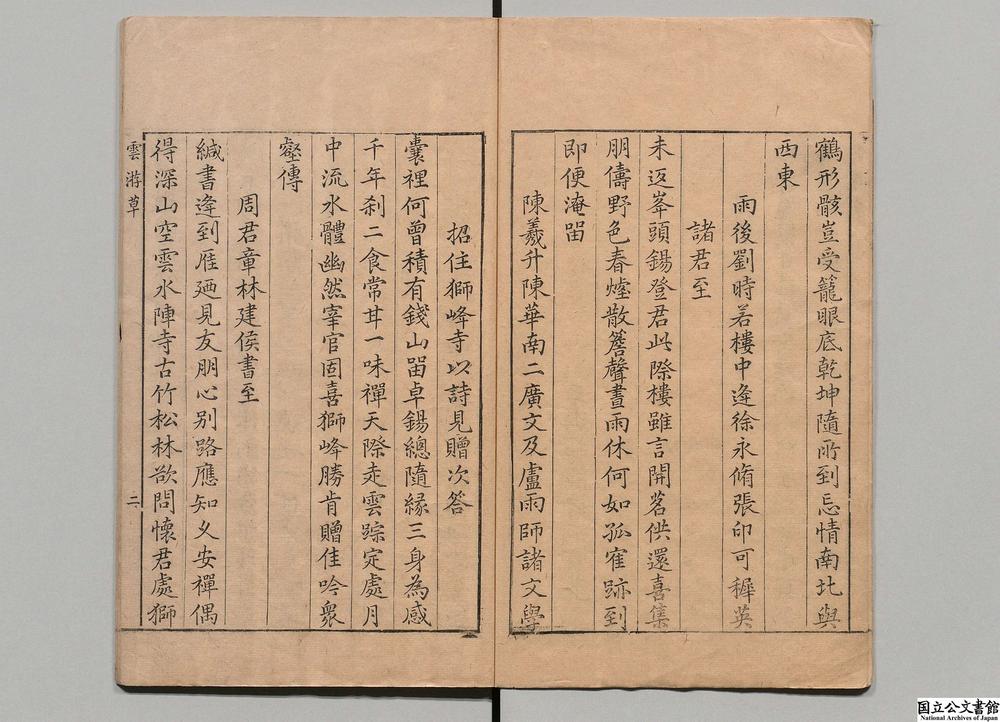 鶴形骸豈受籠眼底乾坤隨所到忘情南北與
西東
雨後劉時若樓中逢徐永脩張印可穉英
諸君至
未返峯頭錫登君此際樓雖言開茗供還喜集
朋儔野色春煙散簷聲晝雨休何如孤寉跡到
即便淹畱
陳羲升陳華南二廣文及盧雨師諸文學
招住獅峰寺以詩見贈次答
囊裡何曾積有錢山畱卓錫總隨緣三身為感
千年刹二食常甘一味禪天際走雲踪定處月
中流水體幽然宰官固喜獅峰勝肯贈佳吟衆
壑傳
周君章林建侯書至
緘書逢到雁廼見友朋心别路應知乂安禪偶
得深山空雲水陣寺古竹松林欲問懷君處獅
雲游草
二
国立公文書館
National Archives of Japan